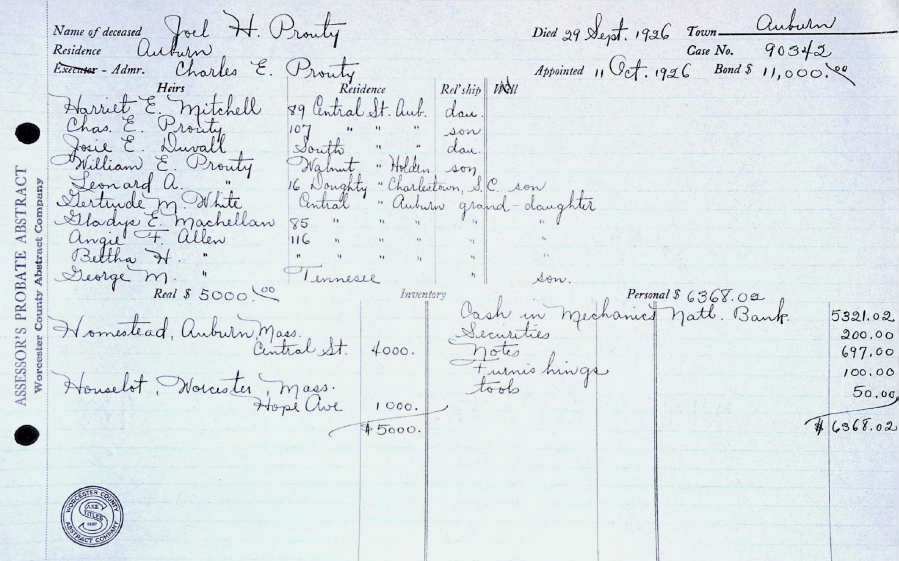 Name of deceased Joel H. Prouty Died 29 Sept. 1926 Town Auburn
Residence Auburn Case No. 90342
Executor - Admr. Charles E. Prouty Appointed 11 Oct. 1926 Bond $ 11,000.00
Heirs Residence Rel'ship Will
Harriet E. Mitchell 89 Central St. Aub. dau.
Chas. E. Prouty 107 " " " son
Josie E. Duvall South " " dau.
William E. Prouty Walnut " Holden son
Leonard A. " 16 Doughty " Charlestown, S.C. son
Gertrude M. White Central " Auburn grand-daughter
Gladys E. Machellan 85 " " " "
Angie F. Allen 116 " " " "
Beltha H. " " " " " "
George M. " Tennesee " son.
Real $ 5000.00 Inventory Personal $ 6368.02
Cash in Mechanics Natl. Bank. 5321.02
Homestead, Auburn, Mass. Securities 200.00
Central St. 4000. Notes 697.00
Furnishings 100.00
Houselot, Worcester, Mass. tools 50.00
Hope Ave 1000.
$5000. $ 6368.02
ASSESSOR'S PROBATE ABSTRACT
Worcester County Abstract Company
WORCESTER COUNTY ABSTRACT COMPANY